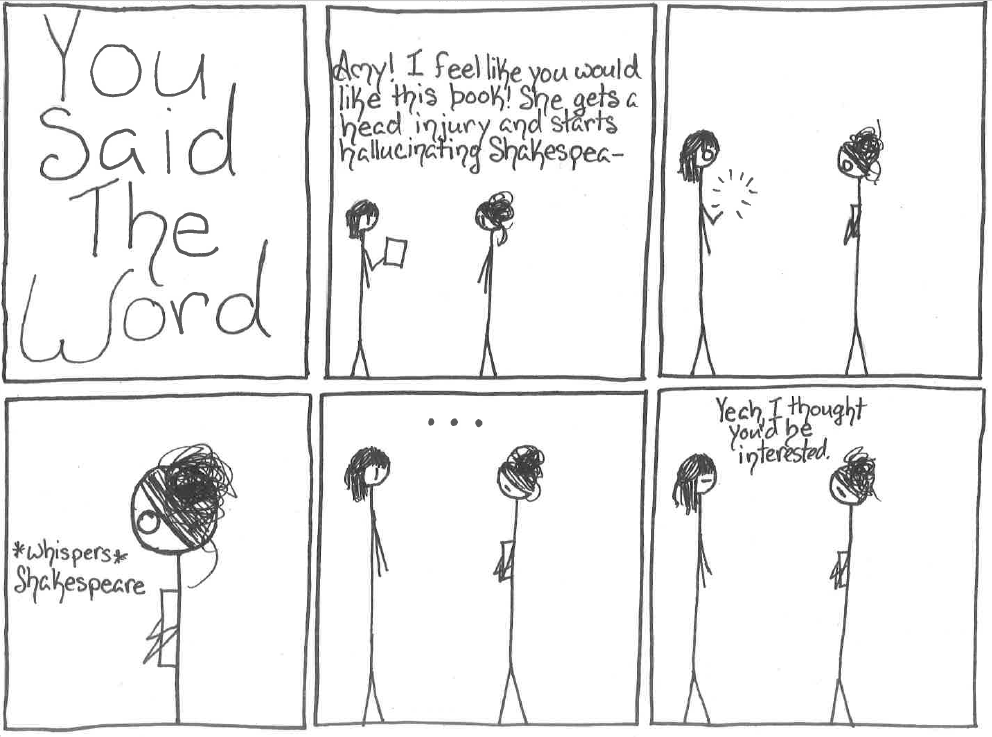 You
Said
The
Word
Amy! I feel like you would
like this book! She gets a
head injury and starts
hallucinating Shakespea-
*whispers*
Shakespeare
...
Yeah, I thought
you'd be
interested.